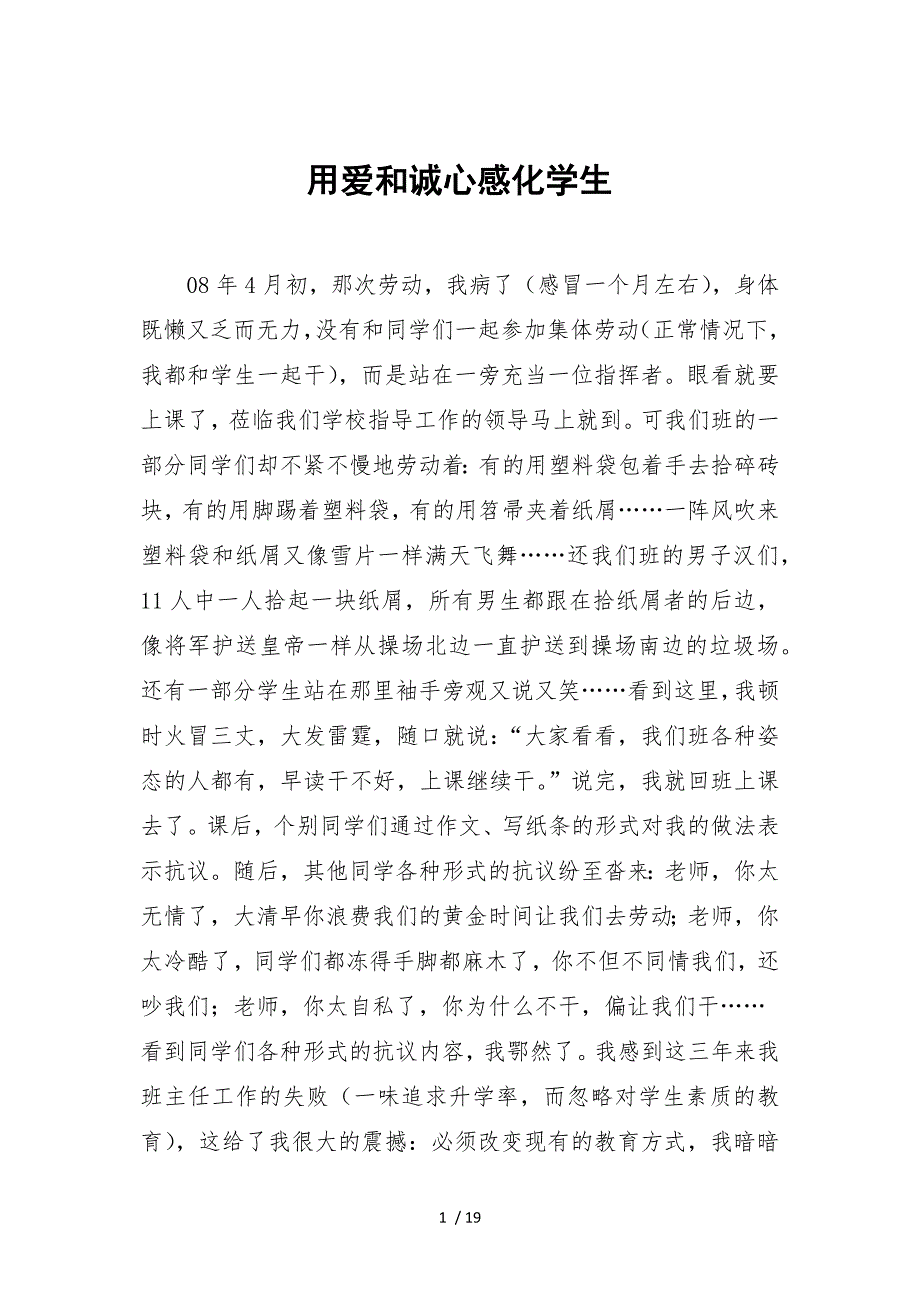 用爱和诚心感化学生
08 年 4 月初，那次劳动，我病了（感冒一个月左右），身体
既懒又乏而无力，没有和同学们一起参加集体劳动（正常情况下，
我都和学生一起干），而是站在一旁充当一位指挥者。眼看就要
上课了，莅临我们学校指导工作的领导马上就到。可我们班的一
部分同学们却不紧不慢地劳动着：有的用塑料袋包着手去拾碎砖
块，有的用脚踢着塑料袋，有的用笤帚夹着纸屑……一阵风吹来
塑料袋和纸屑又像雪片一样满天飞舞……还我们班的男子汉们，
11 人中一人拾起一块纸屑，所有男生都跟在拾纸屑者的后边，
像将军护送皇帝一样从操场北边一直护送到操场南边的垃圾场。
还有一部分学生站在那里袖手旁观又说又笑……看到这里，我顿
时火冒三丈，大发雷霆，随口就说：“大家看看，我们班各种姿
态的人都有，早读干不好，上课继续干。”说完，我就回班上课
去了。课后，个别同学们通过作文、写纸条的形式对我的做法表
示抗议。随后，其他同学各种形式的抗议纷至沓来：老师，你太
无情了，大清早你浪费我们的黄金时间让我们去劳动；老师，你
太冷酷了，同学们都冻得手脚都麻木了，你不但不同情我们，还
吵我们；老师，你太自私了，你为什么不干，偏让我们干……
看到同学们各种形式的抗议内容，我鄂然了。我感到这三年来我
班主任工作的失败（一味追求升学率，而忽略对学生素质的教
育），这给了我很大的震撼：必须改变现有的教育方式，我暗暗
1 / 19